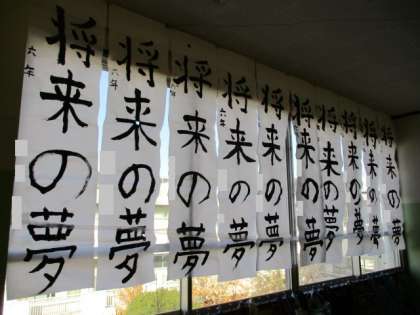 将来の夢
六年
将来の夢
六年
将来の夢
六年
将来の夢
六年
将来の夢
将来の夢
将来の夢
将来の夢
将来の夢
将来の夢